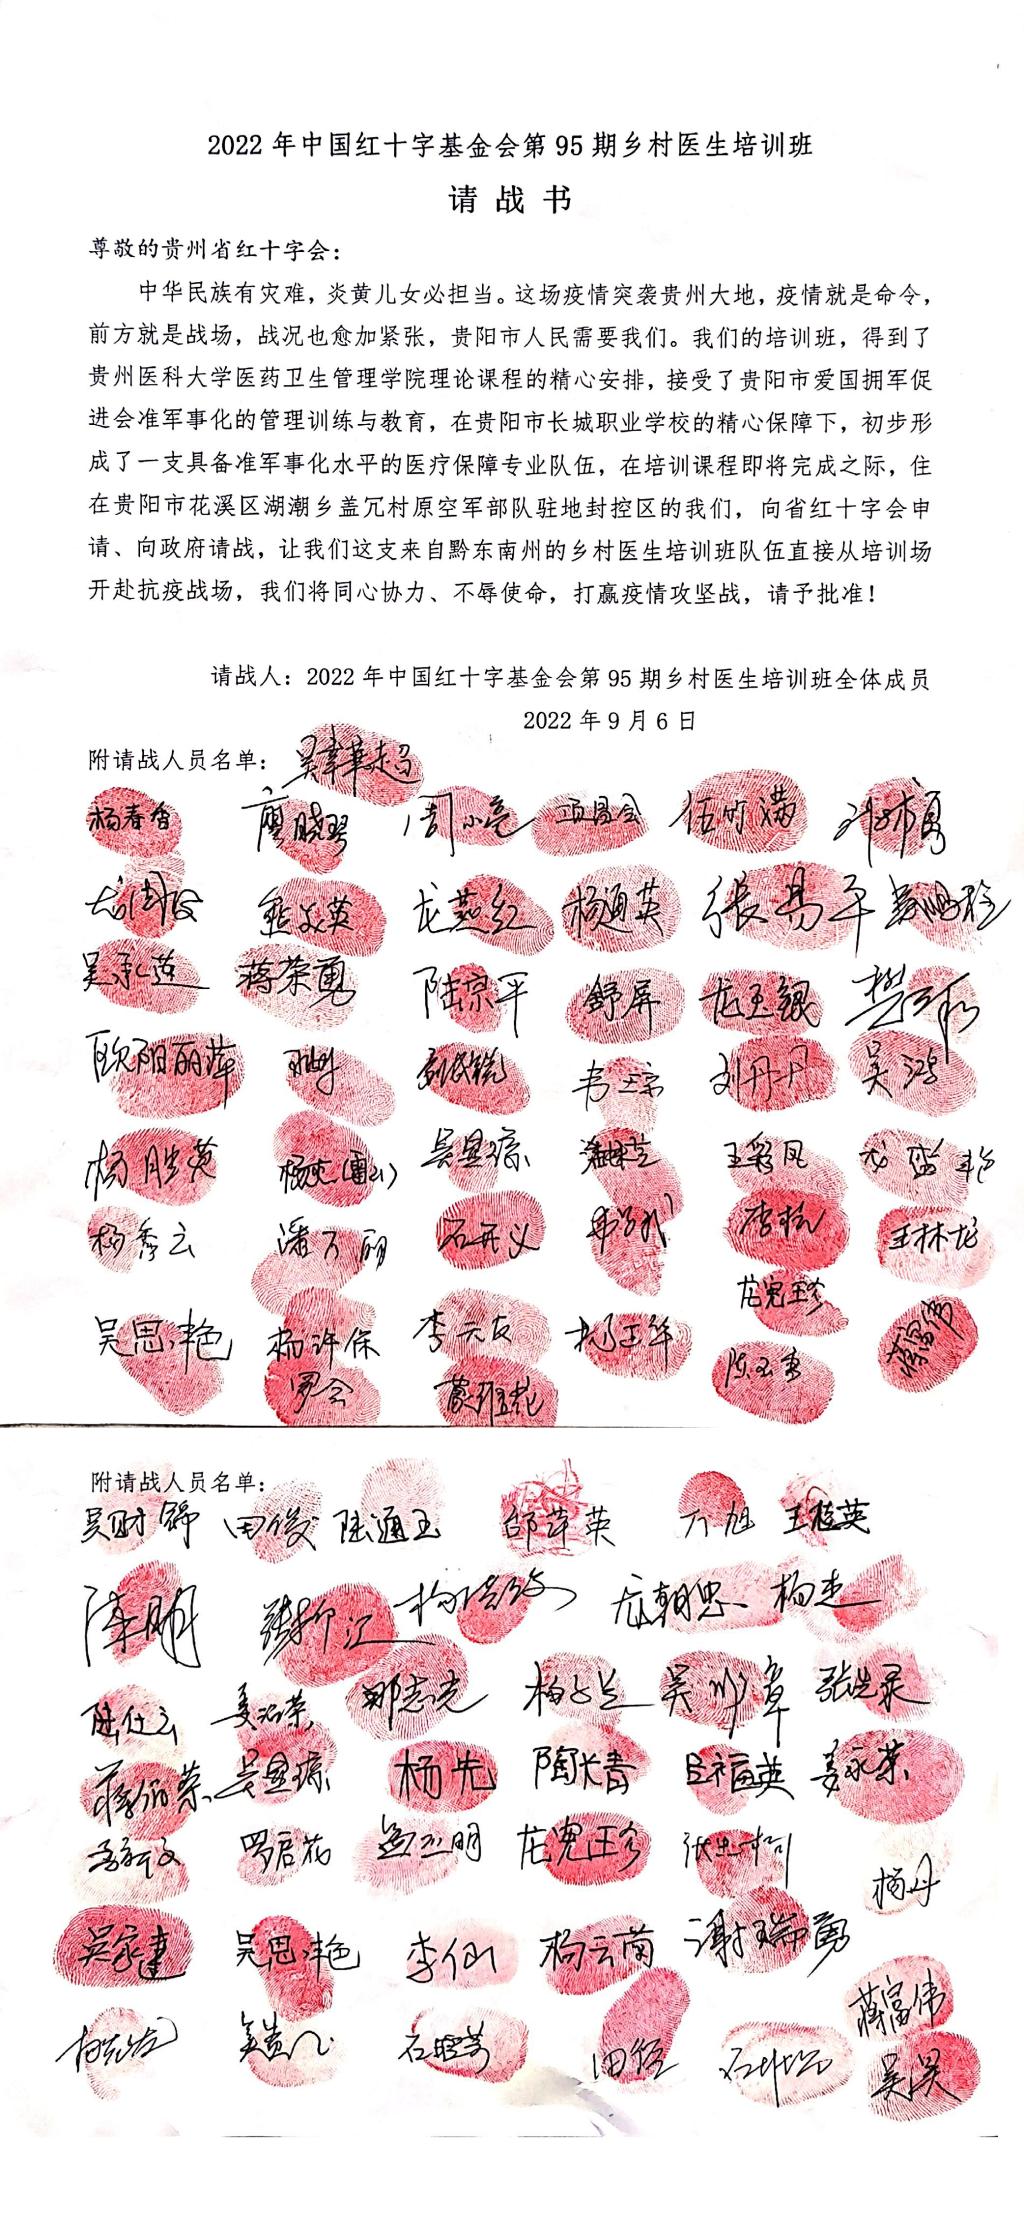 2022年中国红十字基金会第95期乡村医生培训班
请战书
尊敬的贵州省红十字会：
中华民族有灾难，炎黄儿女必担当。这场疫情突袭贵州大地，疫情就是命令，
前方就是战场，战况也愈加紧张，贵阳市人民需要我们。我们的培训班，得到了
贵州医科大学医药卫生管理学院理论课程的精心安排，接受了贵阳市爱国拥军促
进会准军事化的管理训练与教育，在贵阳市长城职业学校的精心保障下，初步形
成了一支具备准军事化水平的医疗保障专业队伍，在培训课程即将完成之际，住
在贵阳市花溪区湖潮乡盖冗村原空军部队驻地封控区的我们，向省红十字会申
请、向政府请战，让我们这支来自黔东南州的乡村医生培训班队伍直接从培训场
开赴抗疫战场，我们将同心协力、不辱使命，打赢疫情攻坚战，请予批准！
请战人：2022年中国红十字基金会第95期乡村医生培训班全体成员
2022年9月6日
附请战人员名单：
杨春香 廖晓琴 周小亮 伍竹满
龙燕红 杨通英 张易平
吴承莲 蒋荣勇 陆宗平 舒屏 龙玉银
欧阳丽萍 韦玉宗 刘丹丹 吴鸿
杨胜英 吴显琼 王彩凤
杨秀云 潘万丽 石开义 李杭 王林龙
龙宪珍
吴思艳 杨许保 李元友 杨正华 蒋富伟
罗会 陈玉勇
附请战人员名单：
吴财锦 田俊 陆通玉 邰萍英 万旭 王桂英
陈明 张柳江 龙朝忠 杨杰
陆仕云 姜沼荣 邓志光 吴顺章 张先录
吴显琼 杨先 陶长青 吕福英 姜永荣
罗启花 孟正明 龙宪珍 杨丹
吴家建 吴思艳 李仙 杨云菊 谢瑞勇
蒋富伟
吴贵八 石昭芳 田径 吴昊